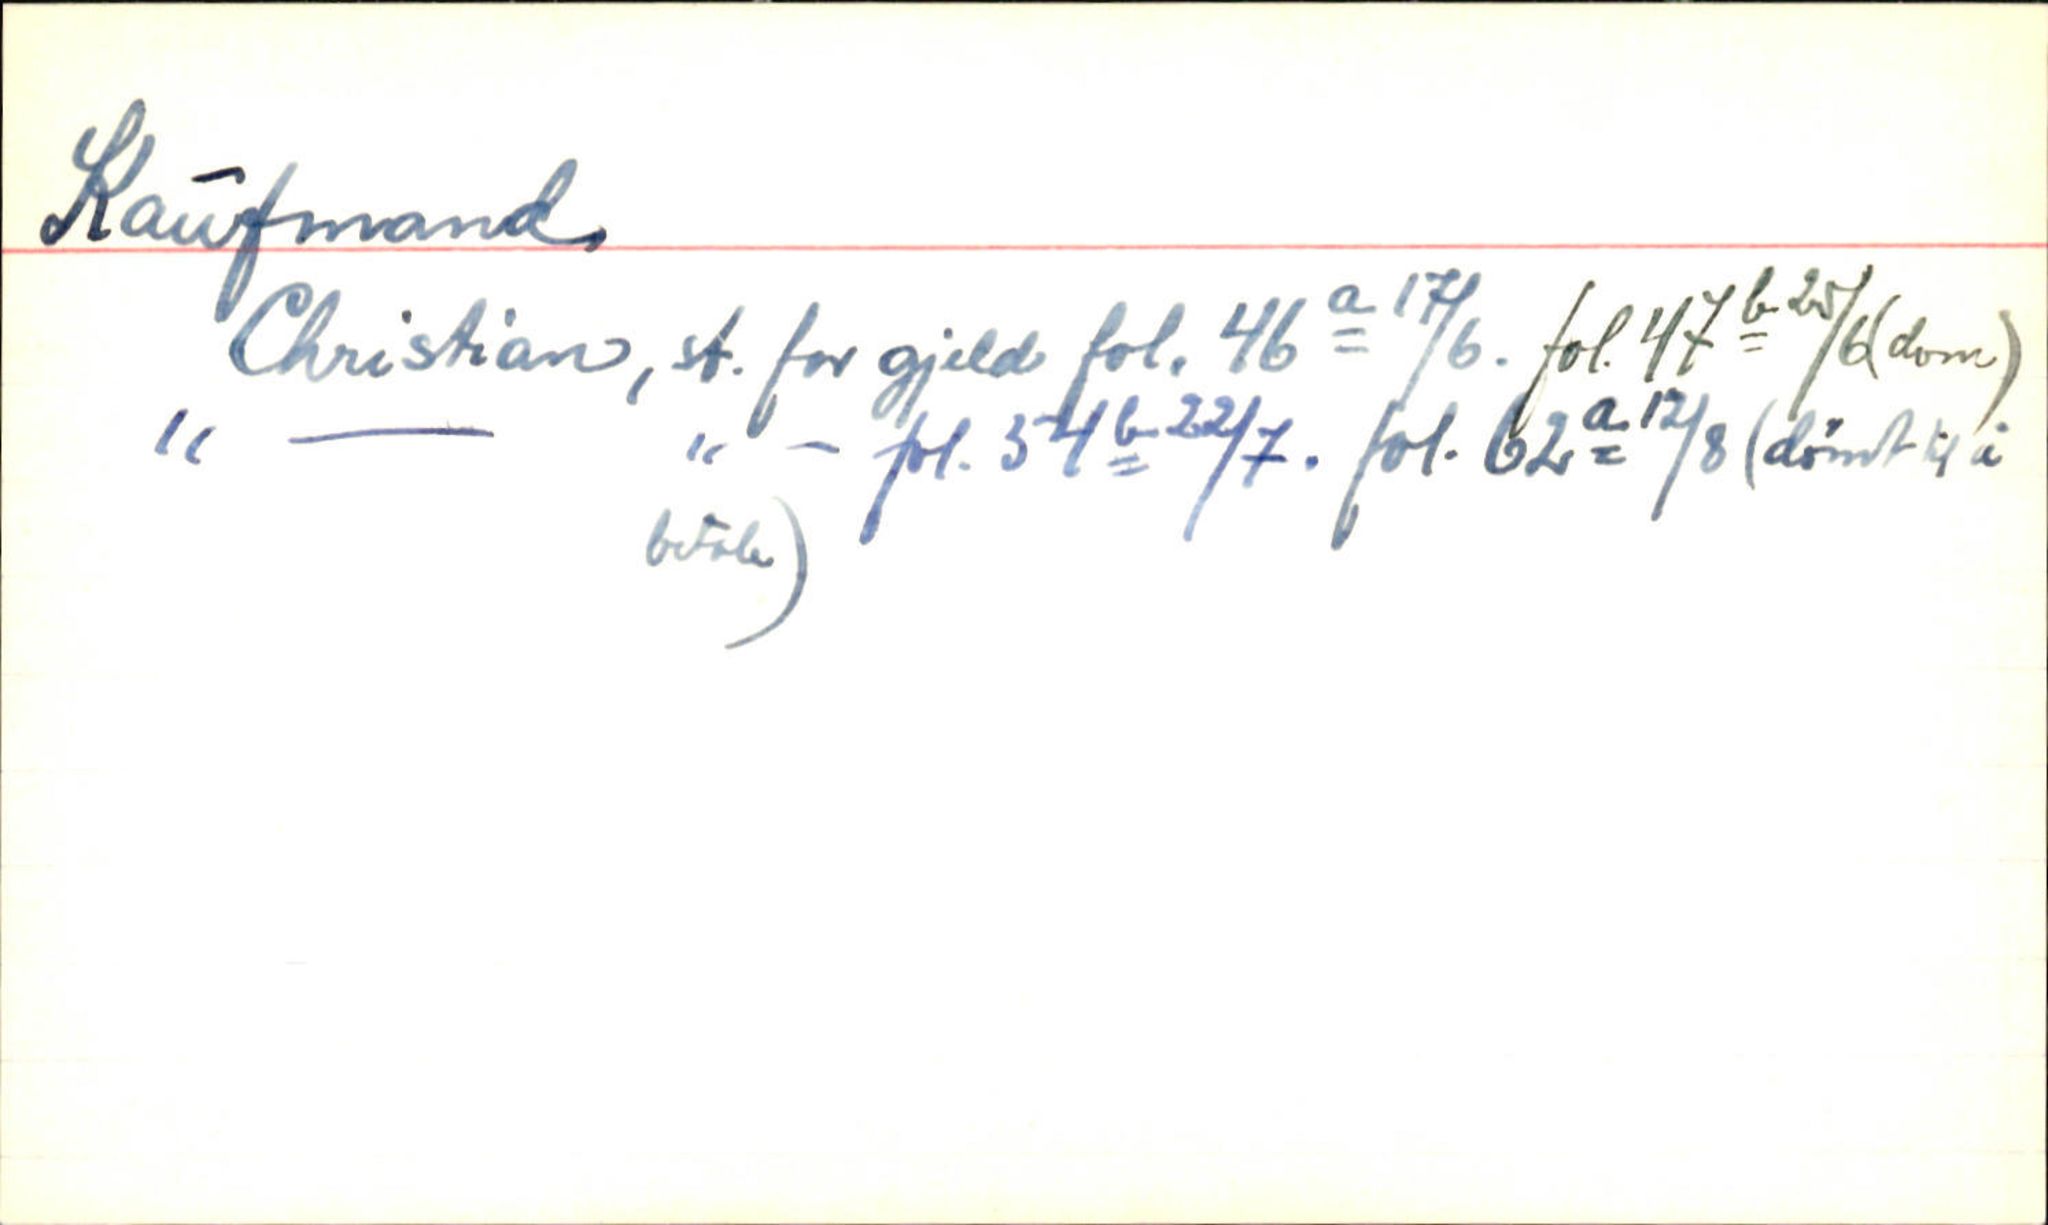 Kaufmand,
Christian, st. for gjeld fol. 46 a 17/6. fol. 47 b 25/6 (dom)
" — " - fol. 54 b 22/7. fol. 62 a 12/8 (dömt til å
betale)